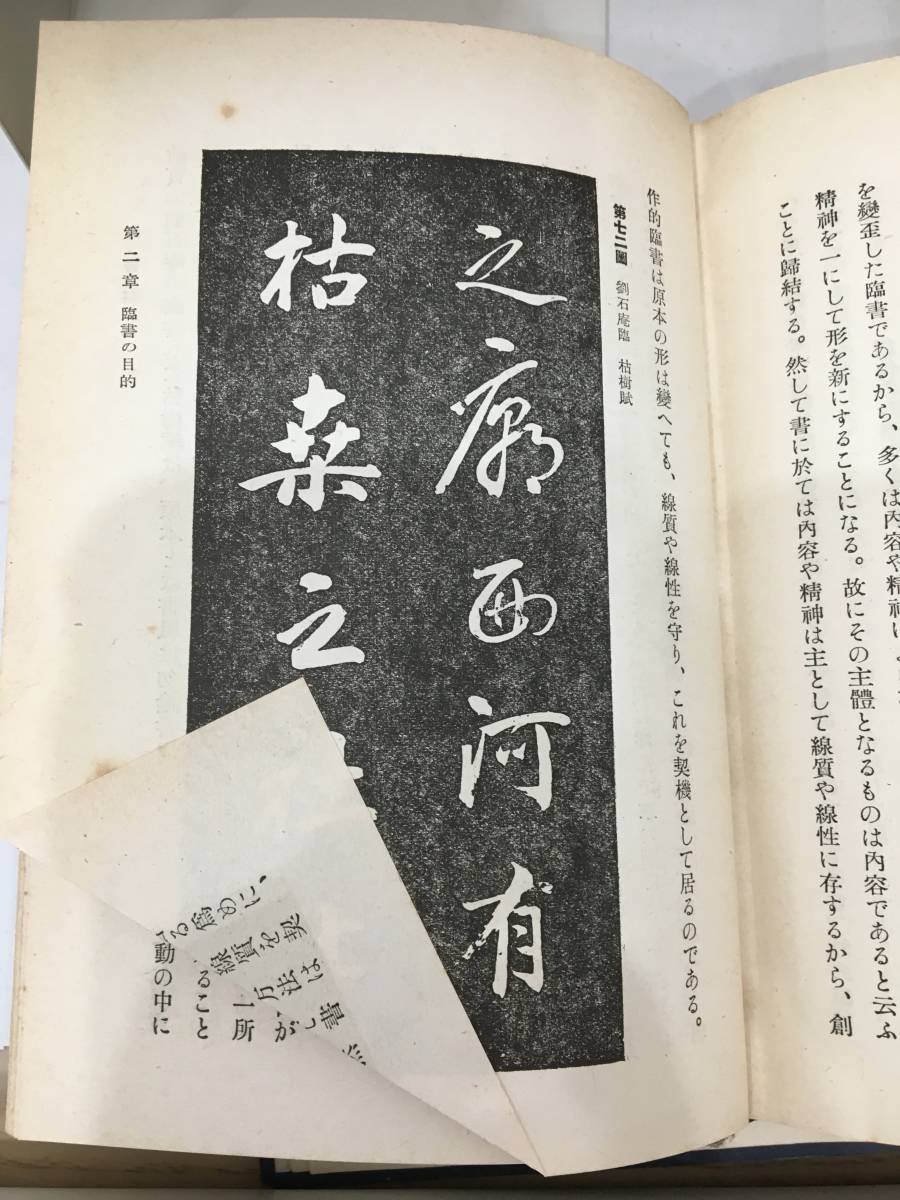 を變歪した臨書であるから、多くは內容や精神は
精神を一にして形を新にすることになる。故にその主體となるものは內容であると云ふ
ことに歸結する。然して書に於ては內容や精神は主として線質や線性に存するから、創
作的臨書は原本の形は變へても、線質や線性を守り、これを契機として居るのである。
第七二圖 劉石庵臨 枯樹賦
之廟西河有
枯桒之
第二章 臨書の目的
る爲めに、
線質を契
方法は
書
動の中に
ること
一所
が